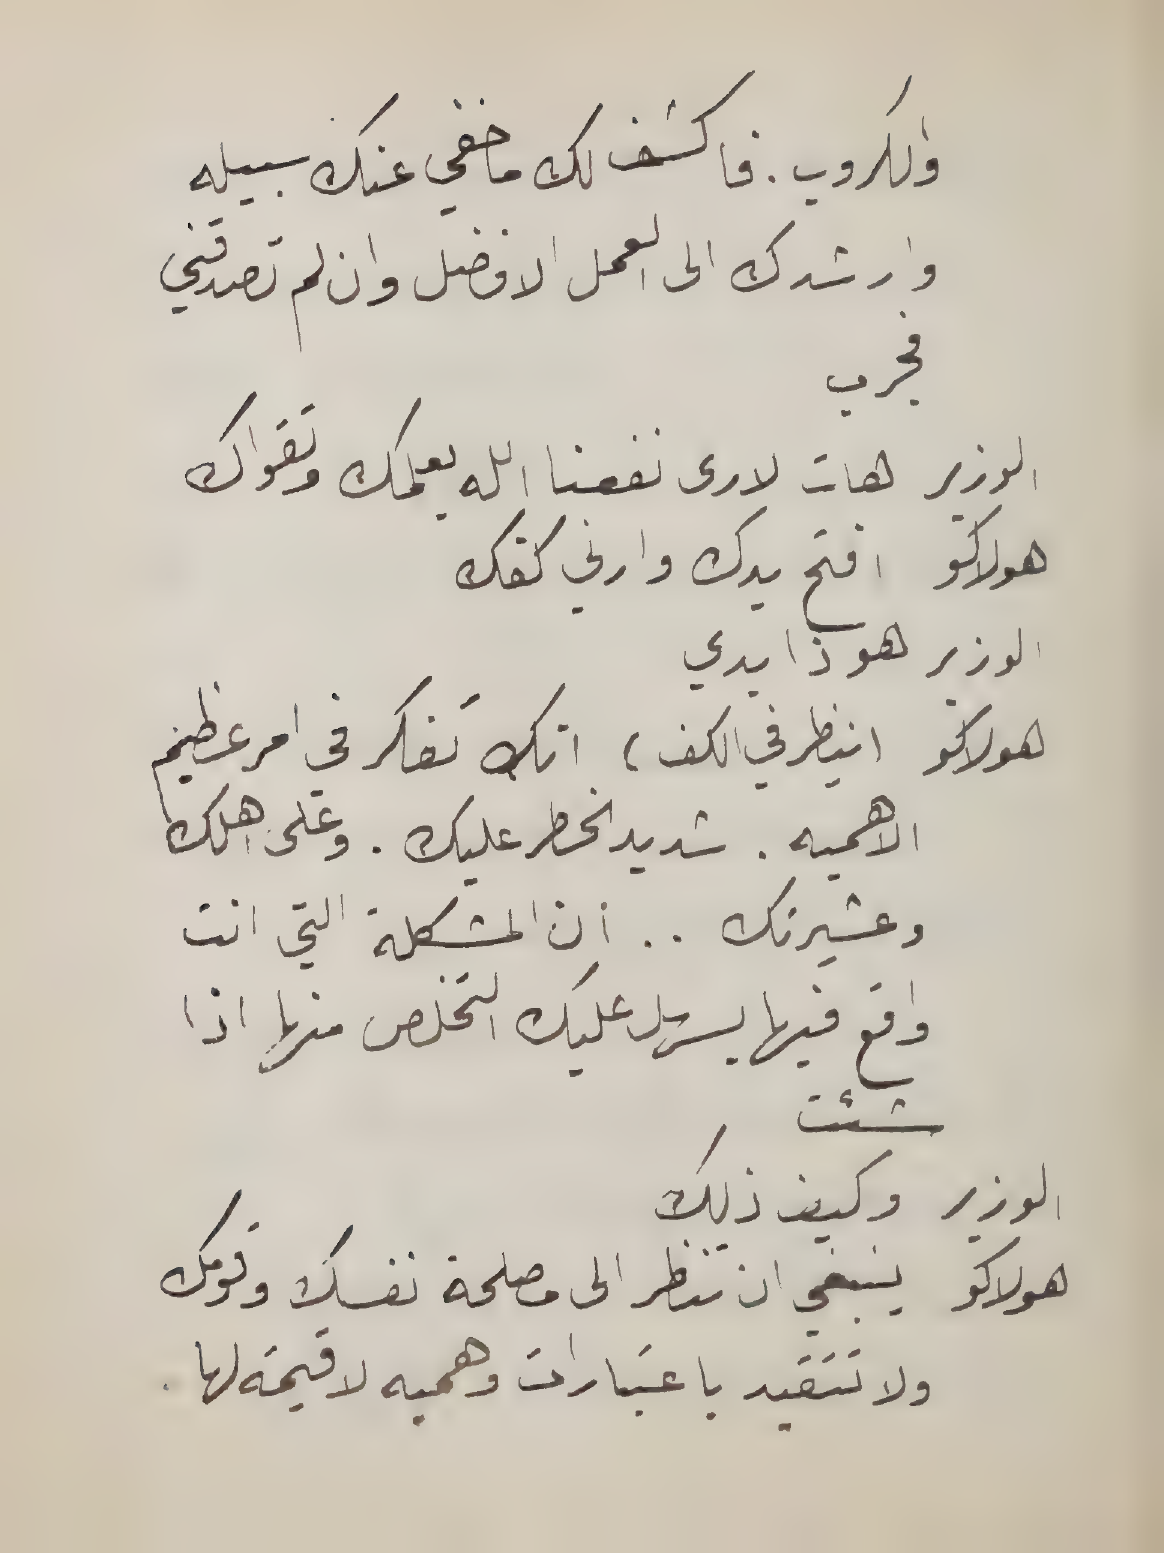 والكروب . فاكشف لك ما خفي عنك سبيله
وارشدك الى العمل الافضل وان لم تصدقني
فجرب
الوزير هات لارى نفعنا الله بعملك وتقواك
هولاكو افتح يدك وارني كفك
الوزير هوذا يدي
هولاكو (ينظر في الكف) انك تفكر في امر عظيم
الاهميه . شديد الخطر عليك . وعلى اهلك
وعشيرتك .. ان المشكلة التي انت
واقع فيها يسهل عليك التخلص منها اذا
شئت
الوزير وكيف ذلك
هولاكو ينبغي ان تنظر الى مصلحة نفسك وقومك
ولا تتقيد باعتبارات وهميه لا قيمة لها .